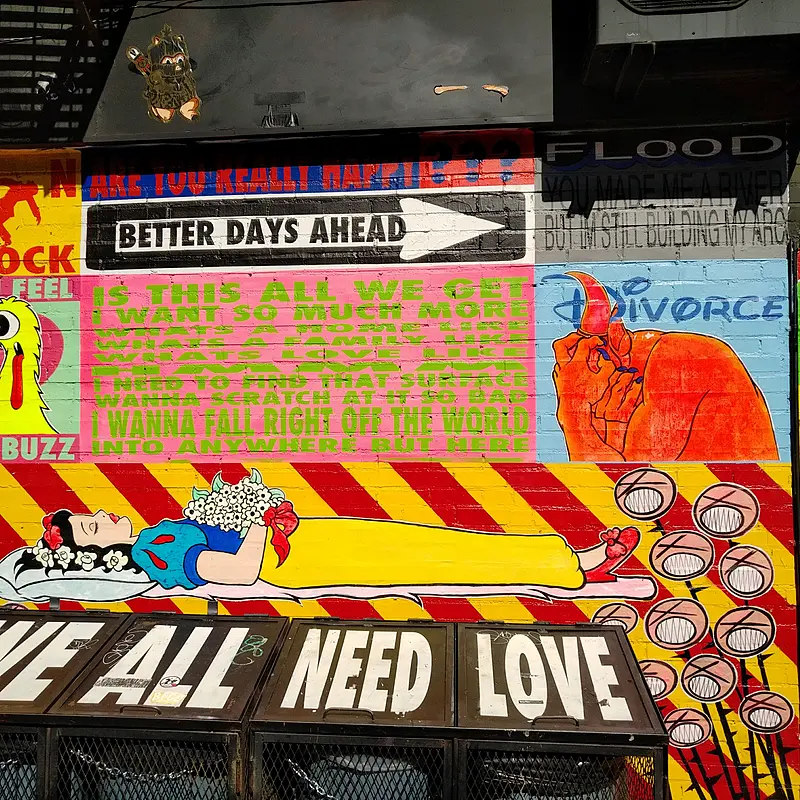 N
OCK
FEEL
BUZZ
ARE YOU REALLY HAPPY???
BETTER DAYS AHEAD
IS THIS ALL WE GET
I WANT SO MUCH MORE
WHATS A HOME LIKE
WHATS A FAMILY LIKE
WHATS LOVE LIKE
I NEED TO FIND THAT SURFACE
WANNA SCRATCH AT IT SO BAD
I WANNA FALL RIGHT OFF THE WORLD
INTO ANYWHERE BUT HERE
FLOOD
YOU MADE ME A RIVER
BUT IM STILL BUILDING MY ARC
DIVORCE
WE ALL NEED LOVE